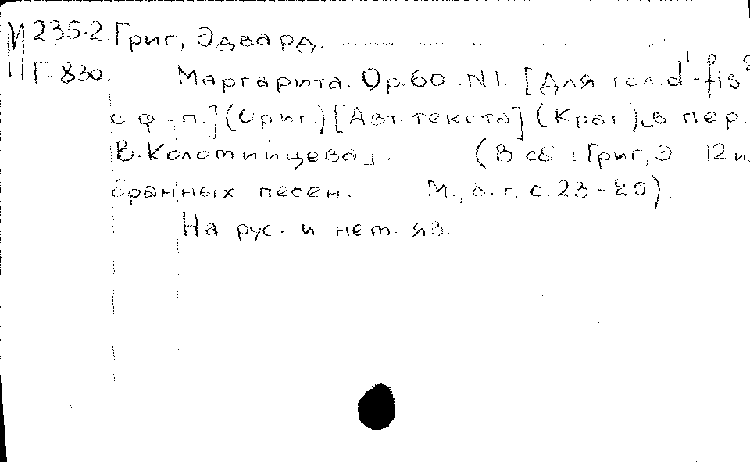 И 235-2 Григ, Эдвард.
Г-830. Маргарита. Ор.60.N1. [Для гол. d¹-fis²
с ф-п.] (Ориг.) [Авт. текста] (Краг), в пер.
В. Коломийцева]. (В сб.: Григ, Э 12 и
бранных песен. М., б.г. с. 23-
На рус. и нем. яз.